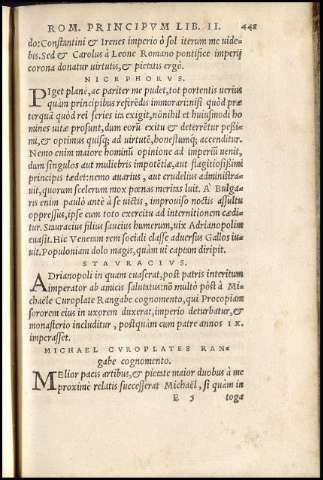 ROM. PRINCIPVM LIB. II. 448
do: Constantini & Irenes imperio ò sol iterum me uide-
bis. Sed & Carolus à Leone Romano pontifice imperij
corona donatur uirtutis, & pietatis ergò.
NICEPHORVS.
PIget planè, ac pariter me pudet, tot portentis uerius
quàm principibus referēdis immorari: nisi quòd præ
terquā quòd rei series ita exigit, nōnihil et huiusmodi ho
mines uitæ prosunt, dum eorū exitu & deterrētur pessi-
mi, & optimus quisq; ad uirtutē, honestamq; accenditur.
Nemo enim maiore hominū opinione ad imperiū uenit,
dum singulos aut muliebris impotētiæ, aut flagitiosissimi
principis tædet: nemo auarius, aut crudelius administra-
uit, quorum scelerum mox pœnas meritas luit. A' Bulga-
ris enim paulò antè à se uictis, improuiso noctis assultu
oppressus, ipse cum toto exercitu ad internitionem cædi-
tur. Stauracius filius saucius humerum, uix Adrianopolim
euasit. Hic Venetum rem sociali classe aduersus Gallos iu-
uit. Populoniam dolo magis, quàm ui captam diripit.
STAVRACIVS.
ADrianopoli in quam euaserat, post patris interitum
imperator ab amicis salutatus: nō multò pòst à Mi-
chaële Curoplate Rangabe cognomento, qui Procopiam
sororem eius in uxorem duxerat, imperio deturbatur, &
monasterio includitur, postquàm cum patre annos IX.
imperasset.
MICHAEL CVROPLATES RAN-
gabe cognomento.
MElior pacis artibus, & pietate maior duobus à me
proximè relatis successerat Michaël, si quàm in
E 5 toga